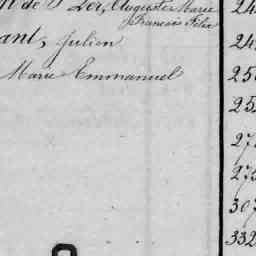 de St Ler, Auguste Marie
François Félix
ant, Julien
Marie Emmanuel
24
24
25
25
27
275
307
332